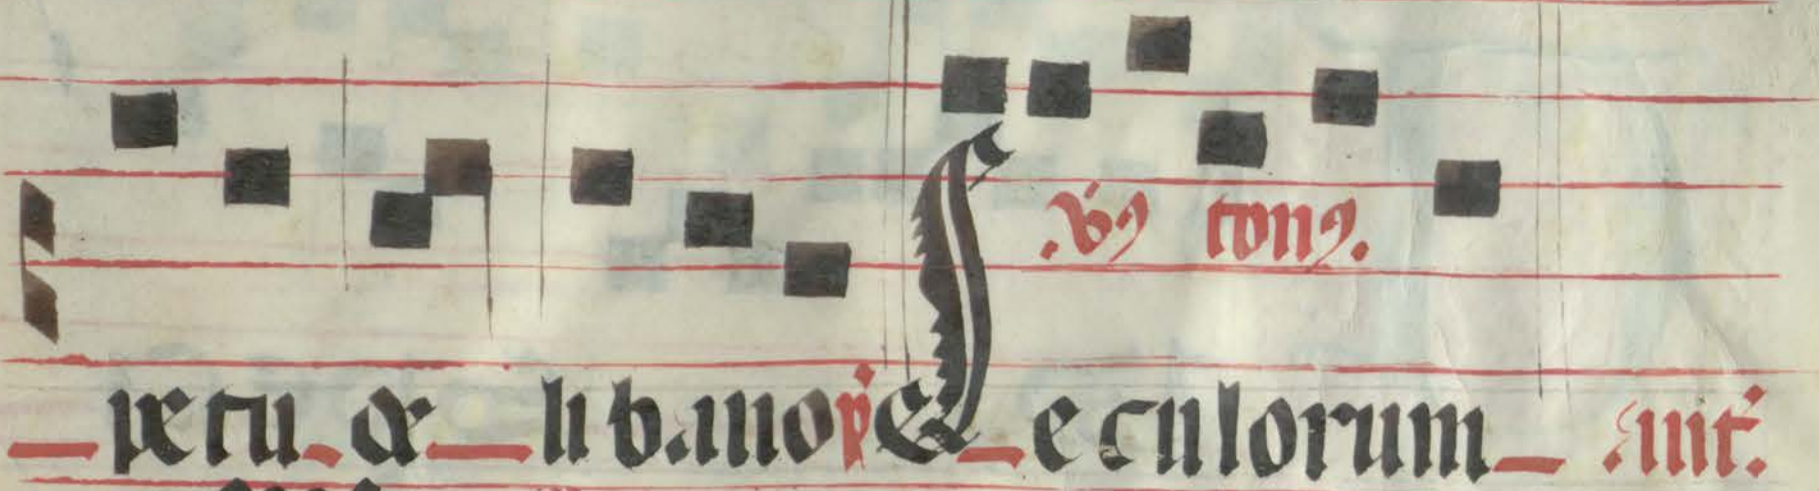 .vꝰ tonꝰ.
petu de libano p̄ Seculorum Ant̄.